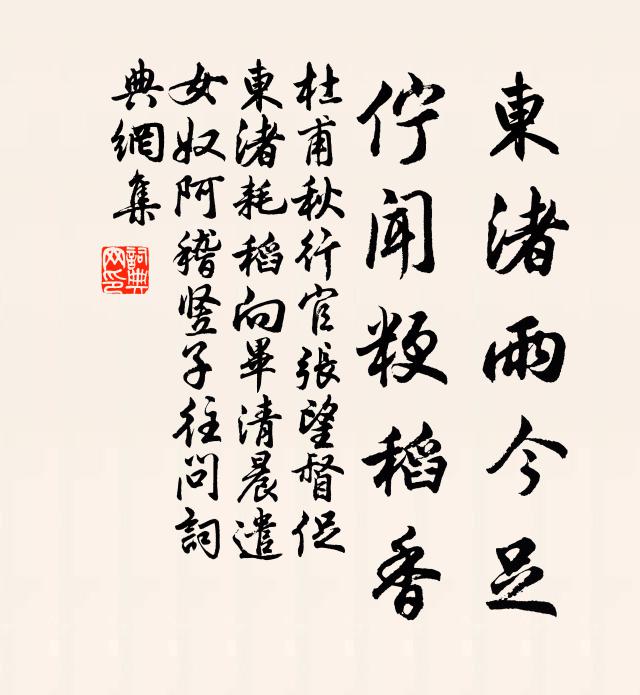 東渚雨今足
佇聞粳稻香
杜甫秋行官張望督促
東渚耗稻向畢清晨遣
女奴阿稽竖子往問詞
典網集
詞典
网印